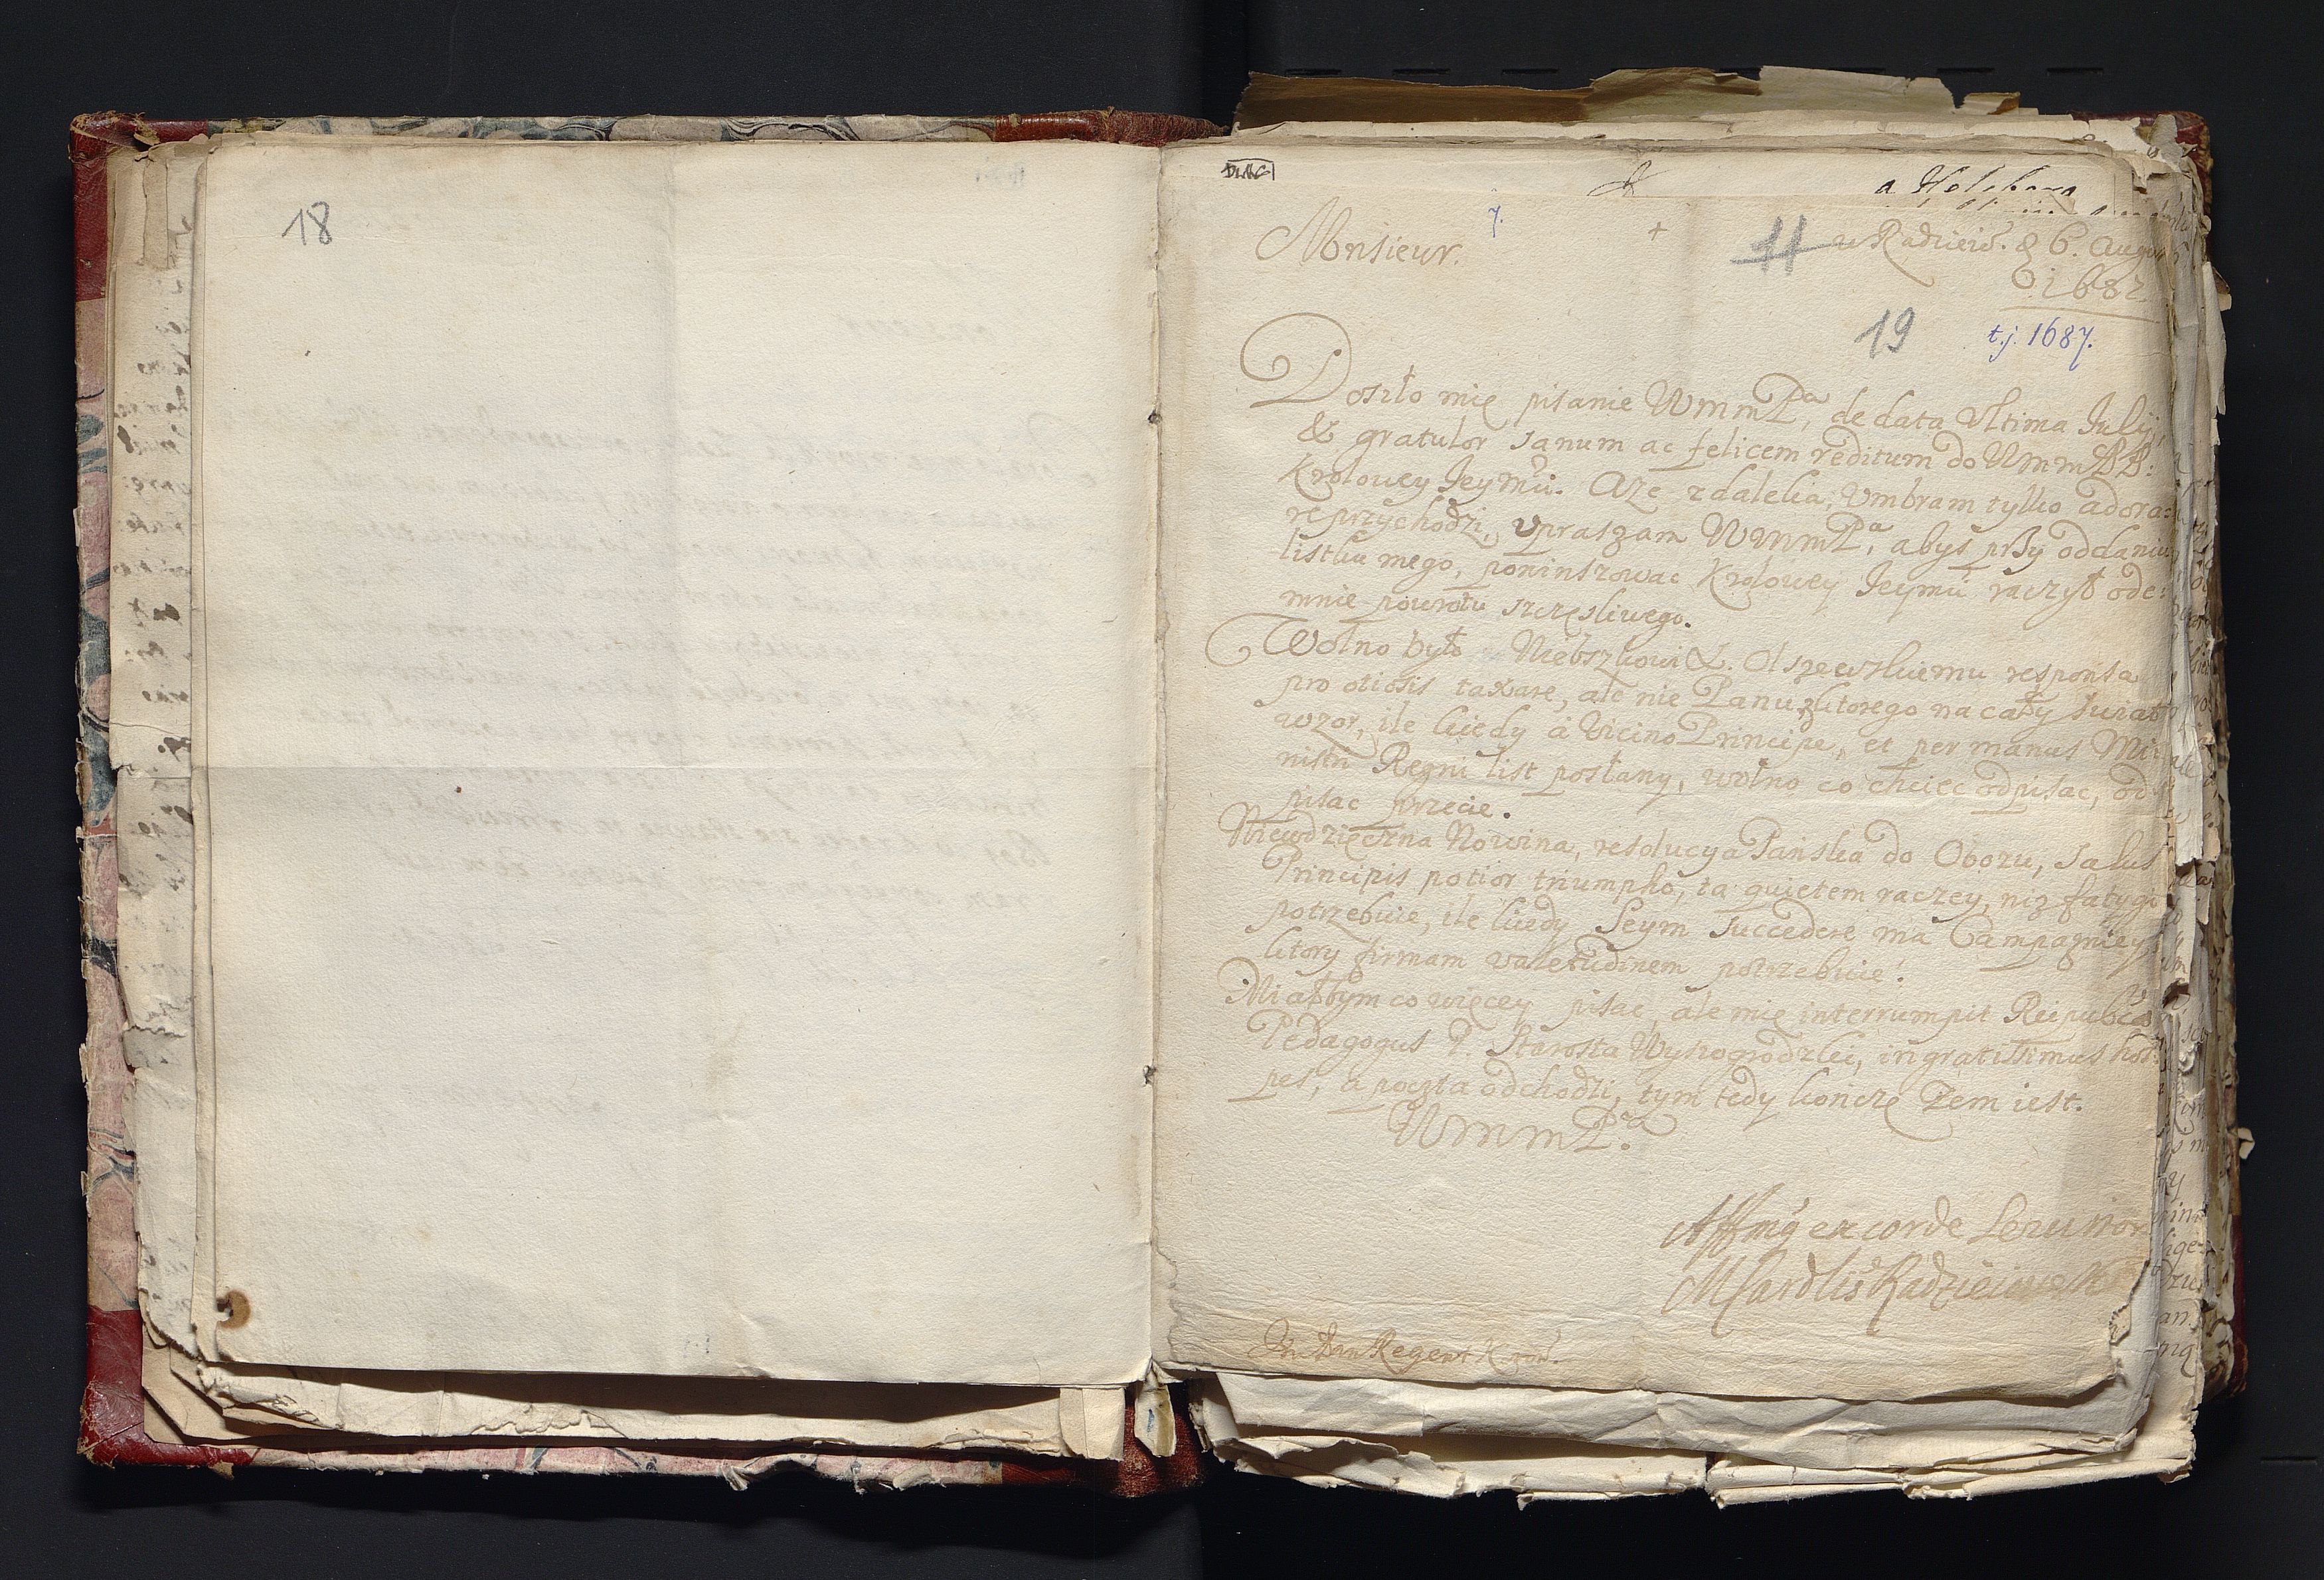 18
Monsieur.
7.
+
11
w Radzieio. d 6. Augus
1687
19
t.j. 1687.
Doszło mię pisanie WmmPa, de data Ultima Julij,
& gratulor sanum ac felicem reditum do WmmPP:
Krolowey Jeymći. Aze zdaleka, Umbram tylko adora=
re przychodzi, upraszam WmmPa, abyś przy oddaniu
listku mego, powinszowac Krolowey Jeymći raczył ode=
mnie powrotu szczęsliwego.
Wolno było Niebszkowi X. Olszewskiemu responsa
pro otiosis taxare, ale nie Panu, ktorego na cały swiat
wzor, ile kiedy à Vicino Principe, et per manus Mi=
nistri Regni list posłany, wolno co chciec odpisac, od=
pisac przecie.
Niewdzięczna Nowina, resolucya Panska do Obozu, Salus
Principis potior triumpho, ta quietem raczey, niz fatygi
potrzebuie, ile kiedy Seym succedere ma Campagniey,
ktory firmam valetudinem potrzebuie.
Miałbym co więcey pisac, ale mie interrumpit Reipublcæ
Pedagogus P. Starosta Wyszogrodzki, ingratissimus hos=
pes, a poczta odchodzi, tym tedy koncze zem iest.
WmmPa.
Affmg ex corde Servitor
M Cardlis Radzieiowski
Pan Regent Kor.